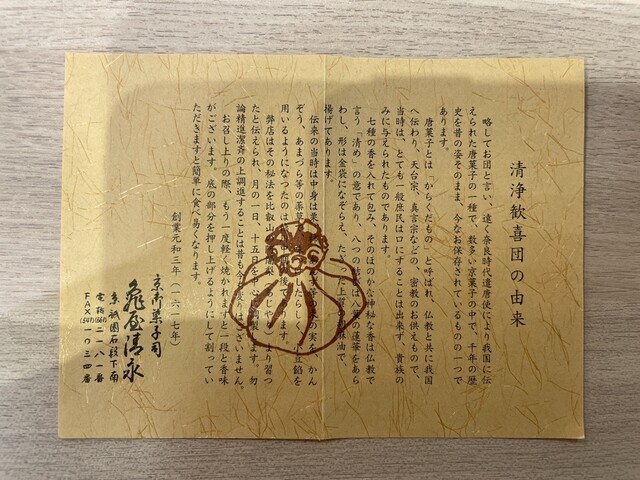 清浄歓喜団の由来
略してお団と言い、遠く奈良時代遣唐使により我国に伝
えられた唐菓子の一種で、数多い京菓子の中で、千年の歴
史を昔の姿そのまま、今なお保存されているものの一つで
あります。
唐菓子とは「からくだもの」と呼ばれ、仏教と共に我国
へ伝わり、天台宗、真言宗などの、密教のお供えもので、
当時は、とても一般庶民は口にすることは出来ず、貴族の
みに与えられたものであります。
七種の香を入れて包み、そのほのかな神秘な香は仏教で
言う「清め」の意であり、八つの結は八葉の蓮華をあら
わし、形は金袋になぞらえ、たった上質の胡麻油で、
揚げてあります。
伝来の当時は中身は栗、の実を、かん
ぞう、あまづら等の薬草したらしく、小豆餡を
用いるようになつたのは中期後であります。
弊店はその秘法を比叡山阿闍梨(あじゃり)より習つ
たと伝えられ、月の一日、十五日を中心に調製ます。勿
論精進潔斉の上調進することは昔も今も変りはございません。
お召し上りの際、もう一度軽く焼かれますと一段と香味
がございます。底の部分を押し上げるようにして割ってい
ただきますと簡単に食べ易くなります。
創業元和三年(一六一七年)
京御菓子司
亀屋清永
京祇園石段下南
電話(561)二一八一番
FAX(541)一〇三四番